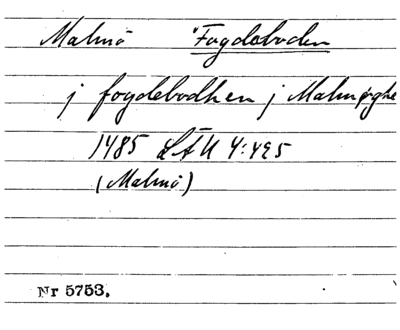 Malmö "Fogdeboden
j fogdebodhen j Malmøghe
1485 LÄU 4:495
(Malmö)
Nr 5753.